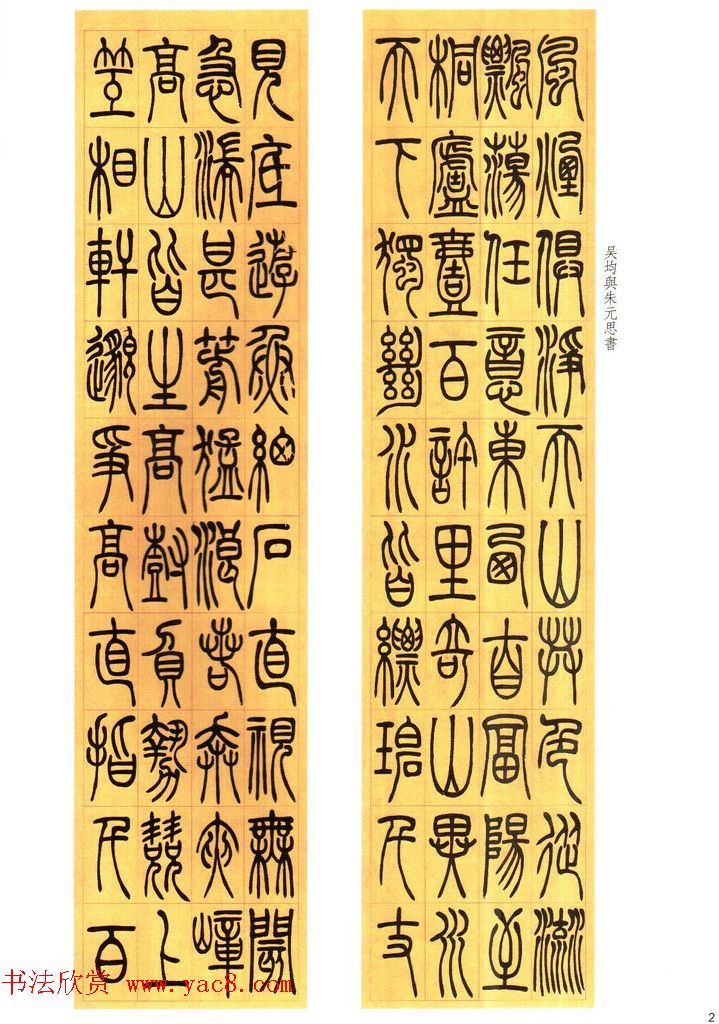 吴均與朱元思書
風煙俱淨天山共色從流
飄蕩任意東西自富陽至
桐廬壹百許里奇山異水
天下獨絕水皆縹碧千丈
見底遊魚細石直視無閡
急湍甚箭猛浪若奔夾嶂
高山皆生高樹負勢競上
互相軒邈爭高直指千百
书法欣赏 www.yac8.com
2